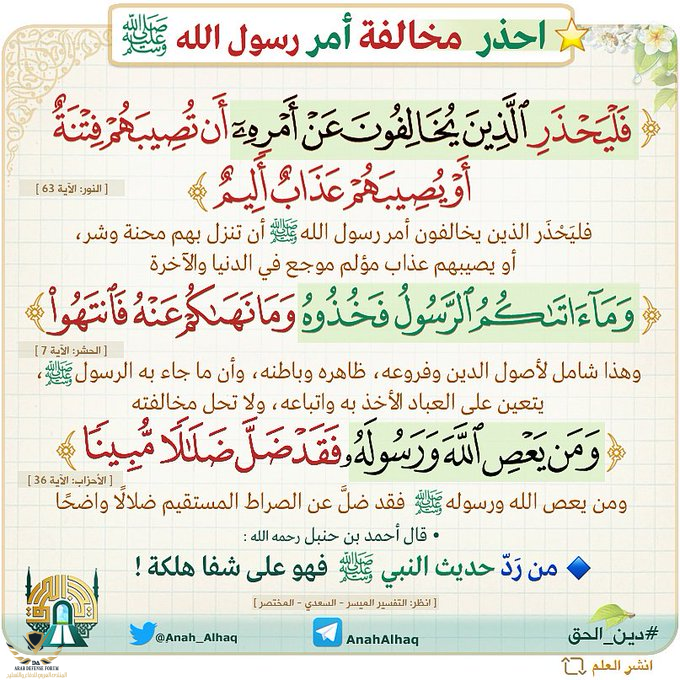 احذر مخالفة أمر رسول الله ﷺ
﴿فَلْيَحْذَرِ ٱلَّذِينَ يُخَالِفُونَ عَنْ أَمْرِهِۦٓ أَن تُصِيبَهُمْ فِتْنَةٌ
أَوْ يُصِيبَهُمْ عَذَابٌ أَلِيمٌ﴾
[ النور: الآية 63 ]
فليَحْذَر الذين يخالفون أمر رسول الله ﷺ أن تنزل بهم محنة وشر،
أو يصيبهم عذاب مؤلم موجع في الدنيا والآخرة
﴿وَمَآ ءَاتَىٰكُمُ ٱلرَّسُولُ فَخُذُوهُ وَمَا نَهَىٰكُمْ عَنْهُ فَٱنتَهُوا۟﴾
[ الحشر: الآية 7 ]
وهذا شامل لأصول الدين وفروعه، ظاهره وباطنه، وأن ما جاء به الرسول ﷺ،
يتعين على العباد الأخذ به واتباعه، ولا تحل مخالفته
﴿وَمَن يَعْصِ ٱللَّهَ وَرَسُولَهُۥ فَقَدْ ضَلَّ ضَلَٰلًا مُّبِينًا﴾
[ الأحزاب: الآية 36 ]
ومن يعص الله ورسوله ﷺ فقد ضلَّ عن الصراط المستقيم ضلالًا واضحًا
• قال أحمد بن حنبل رحمه الله :
من رَدّ حديث النبي ﷺ فهو على شفا هلكة !
[ انظر: التفسير الميسر - السعدي - المختصر ]
#دين_الحق
AnahAlhaq
@Anah_Alhaq
انشر العلم
DA
ARAB DEFENSE FORUM